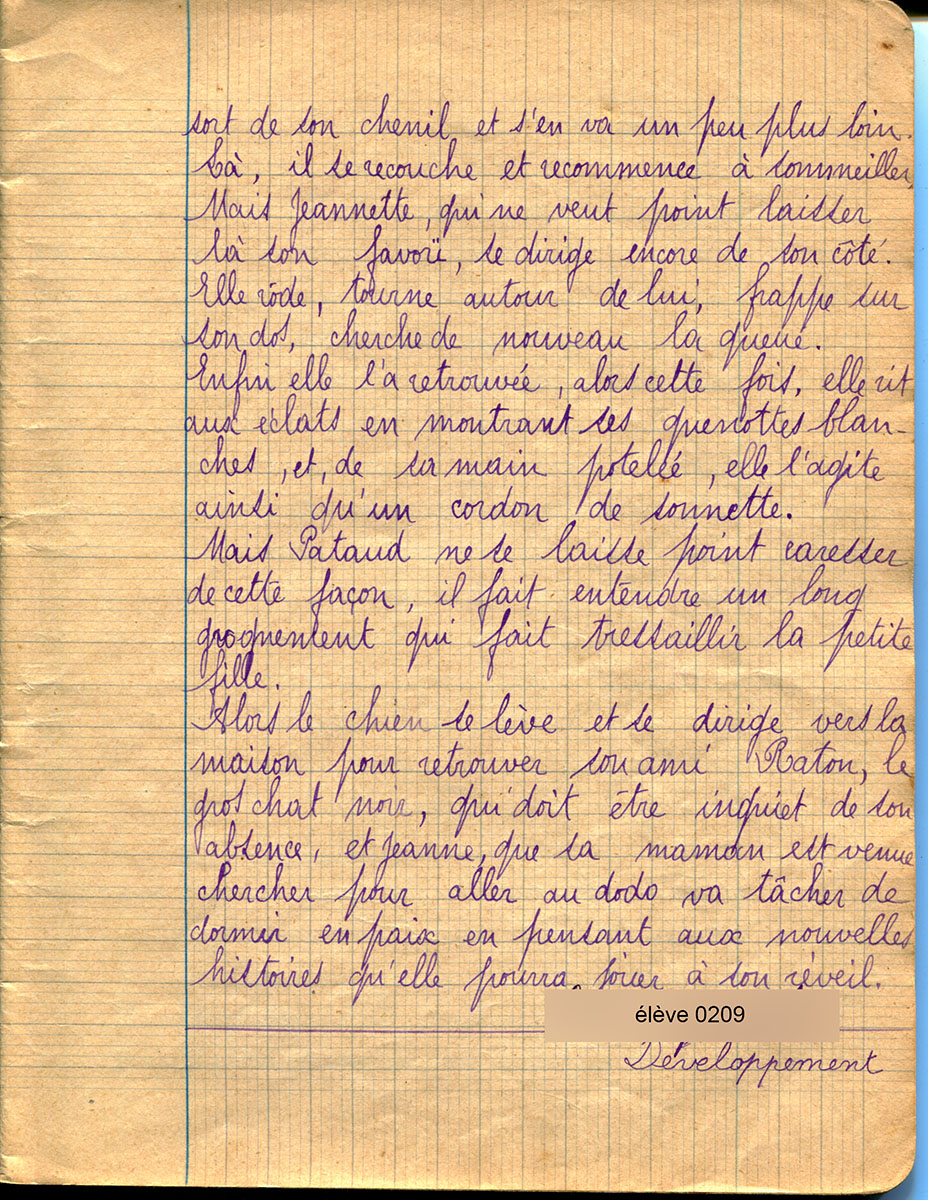 sort de son chenil et s'en va un peu plus loin.
Là, il se recouche et recommence à sommeiller,
Mais Jeannette, qui ne veut point laisser
là son favoï, se dirige encore de son côté.
Elle rôde, tourne autour de lui, frappe sur
son dos, cherche de nouveau la queue.
Enfin elle l'a retrouvée, alors cette fois, elle rit
aux éclats en montrant ses quenottes blan-
ches, et, de sa main potelée, elle l'agite
ainsi qu'un cordon de sonnette.
Mais Pataud ne se laisse point caresser
de cette façon, il fait entendre un long
grognement qui fait tressaillir la petite
fille.
Alors le chien se lève et se dirige vers la
maison pour retrouver son ami Raton, le
gros chat noir, qui doit être inquiet de son
absence, et Jeanne, que sa maman est venue
chercher pour aller au dodo va tâcher de
dormir en paix en pensant aux nouvelles
histoires qu'elle pourra à son réveil.
élève 0209
Développement